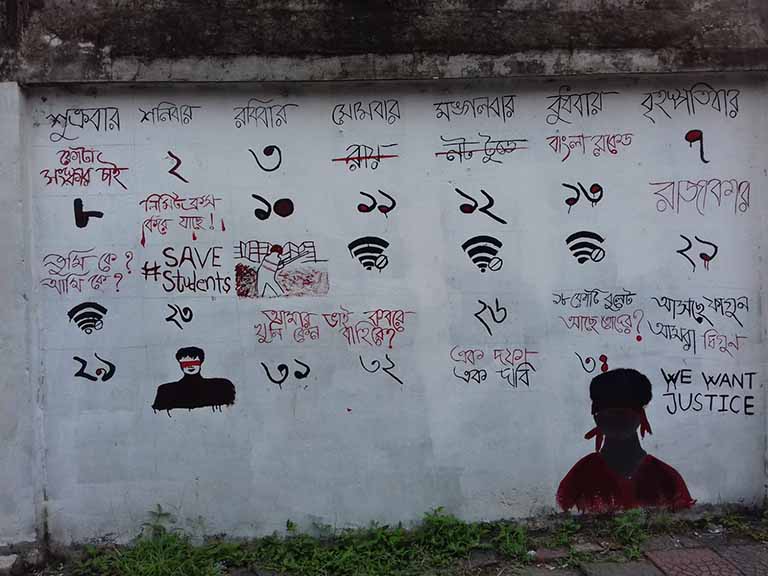 শুক্রবার শনিবার রবিবার সোমবার মঙ্গলবার বুধবার বৃহস্পতিবার
কোটা
সংস্কার চাই
২ ৩ রায় নট টুডে বাংলা ব্লকেড ৭
৮
লিমিট ক্রস
করে যাচ্ছে!!
১০ ১১ ১২ ১৩ রাজাকার
তুমি কে?
আমি কে?
#SAVE
Students
২৩
আমার ভাই কবরে
খুনি কেন বাহিরে?
২৬
১৮ কোটি বুলেট
আছে তোদের?
আসছে ফাগুন
আমরা দ্বিগুন
২৯ ৩১ ৩২
এক দফা
এক দাবি
WE WANT
JUSTICE